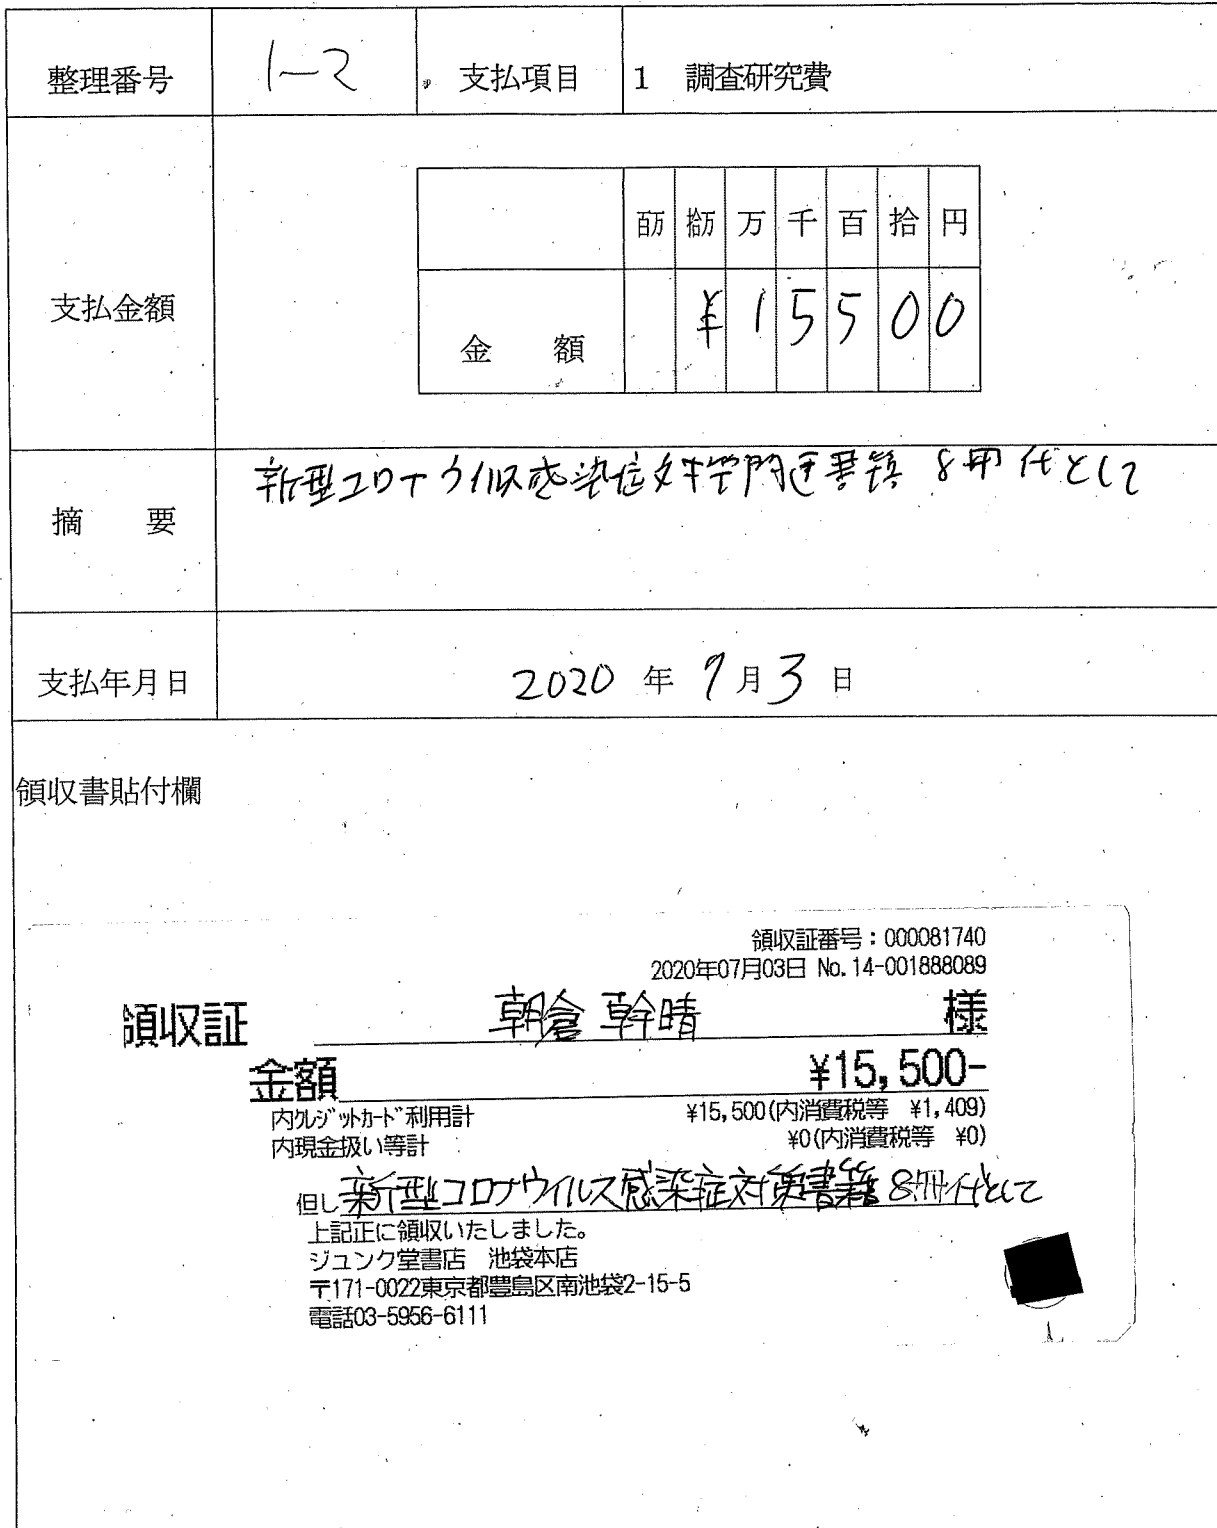 整理番号 1-2 支払項目 1 調査研究費
百万 拾万 万 千 百 拾 円
支払金額
金額 ¥15500
新型コロナウイルス感染症対策関連書籍 8冊代として
摘要
支払年月日 2020年7月3日
領収書貼付欄
領収証番号:000081740
2020年07月03日 No.14-001888089
領収証 朝倉 幹晴 様
金額 ¥15,500-
内クレジットカード利用計 ¥15,500(内消費税等 ¥1,409)
内現金扱い等計 ¥0(内消費税等 ¥0)
但し 新型コロナウイルス感染症対策書籍 8冊代として
上記正に領収いたしました。
ジュンク堂書店 池袋本店
〒171-0022東京都豊島区南池袋2-15-5
電話03-5956-6111